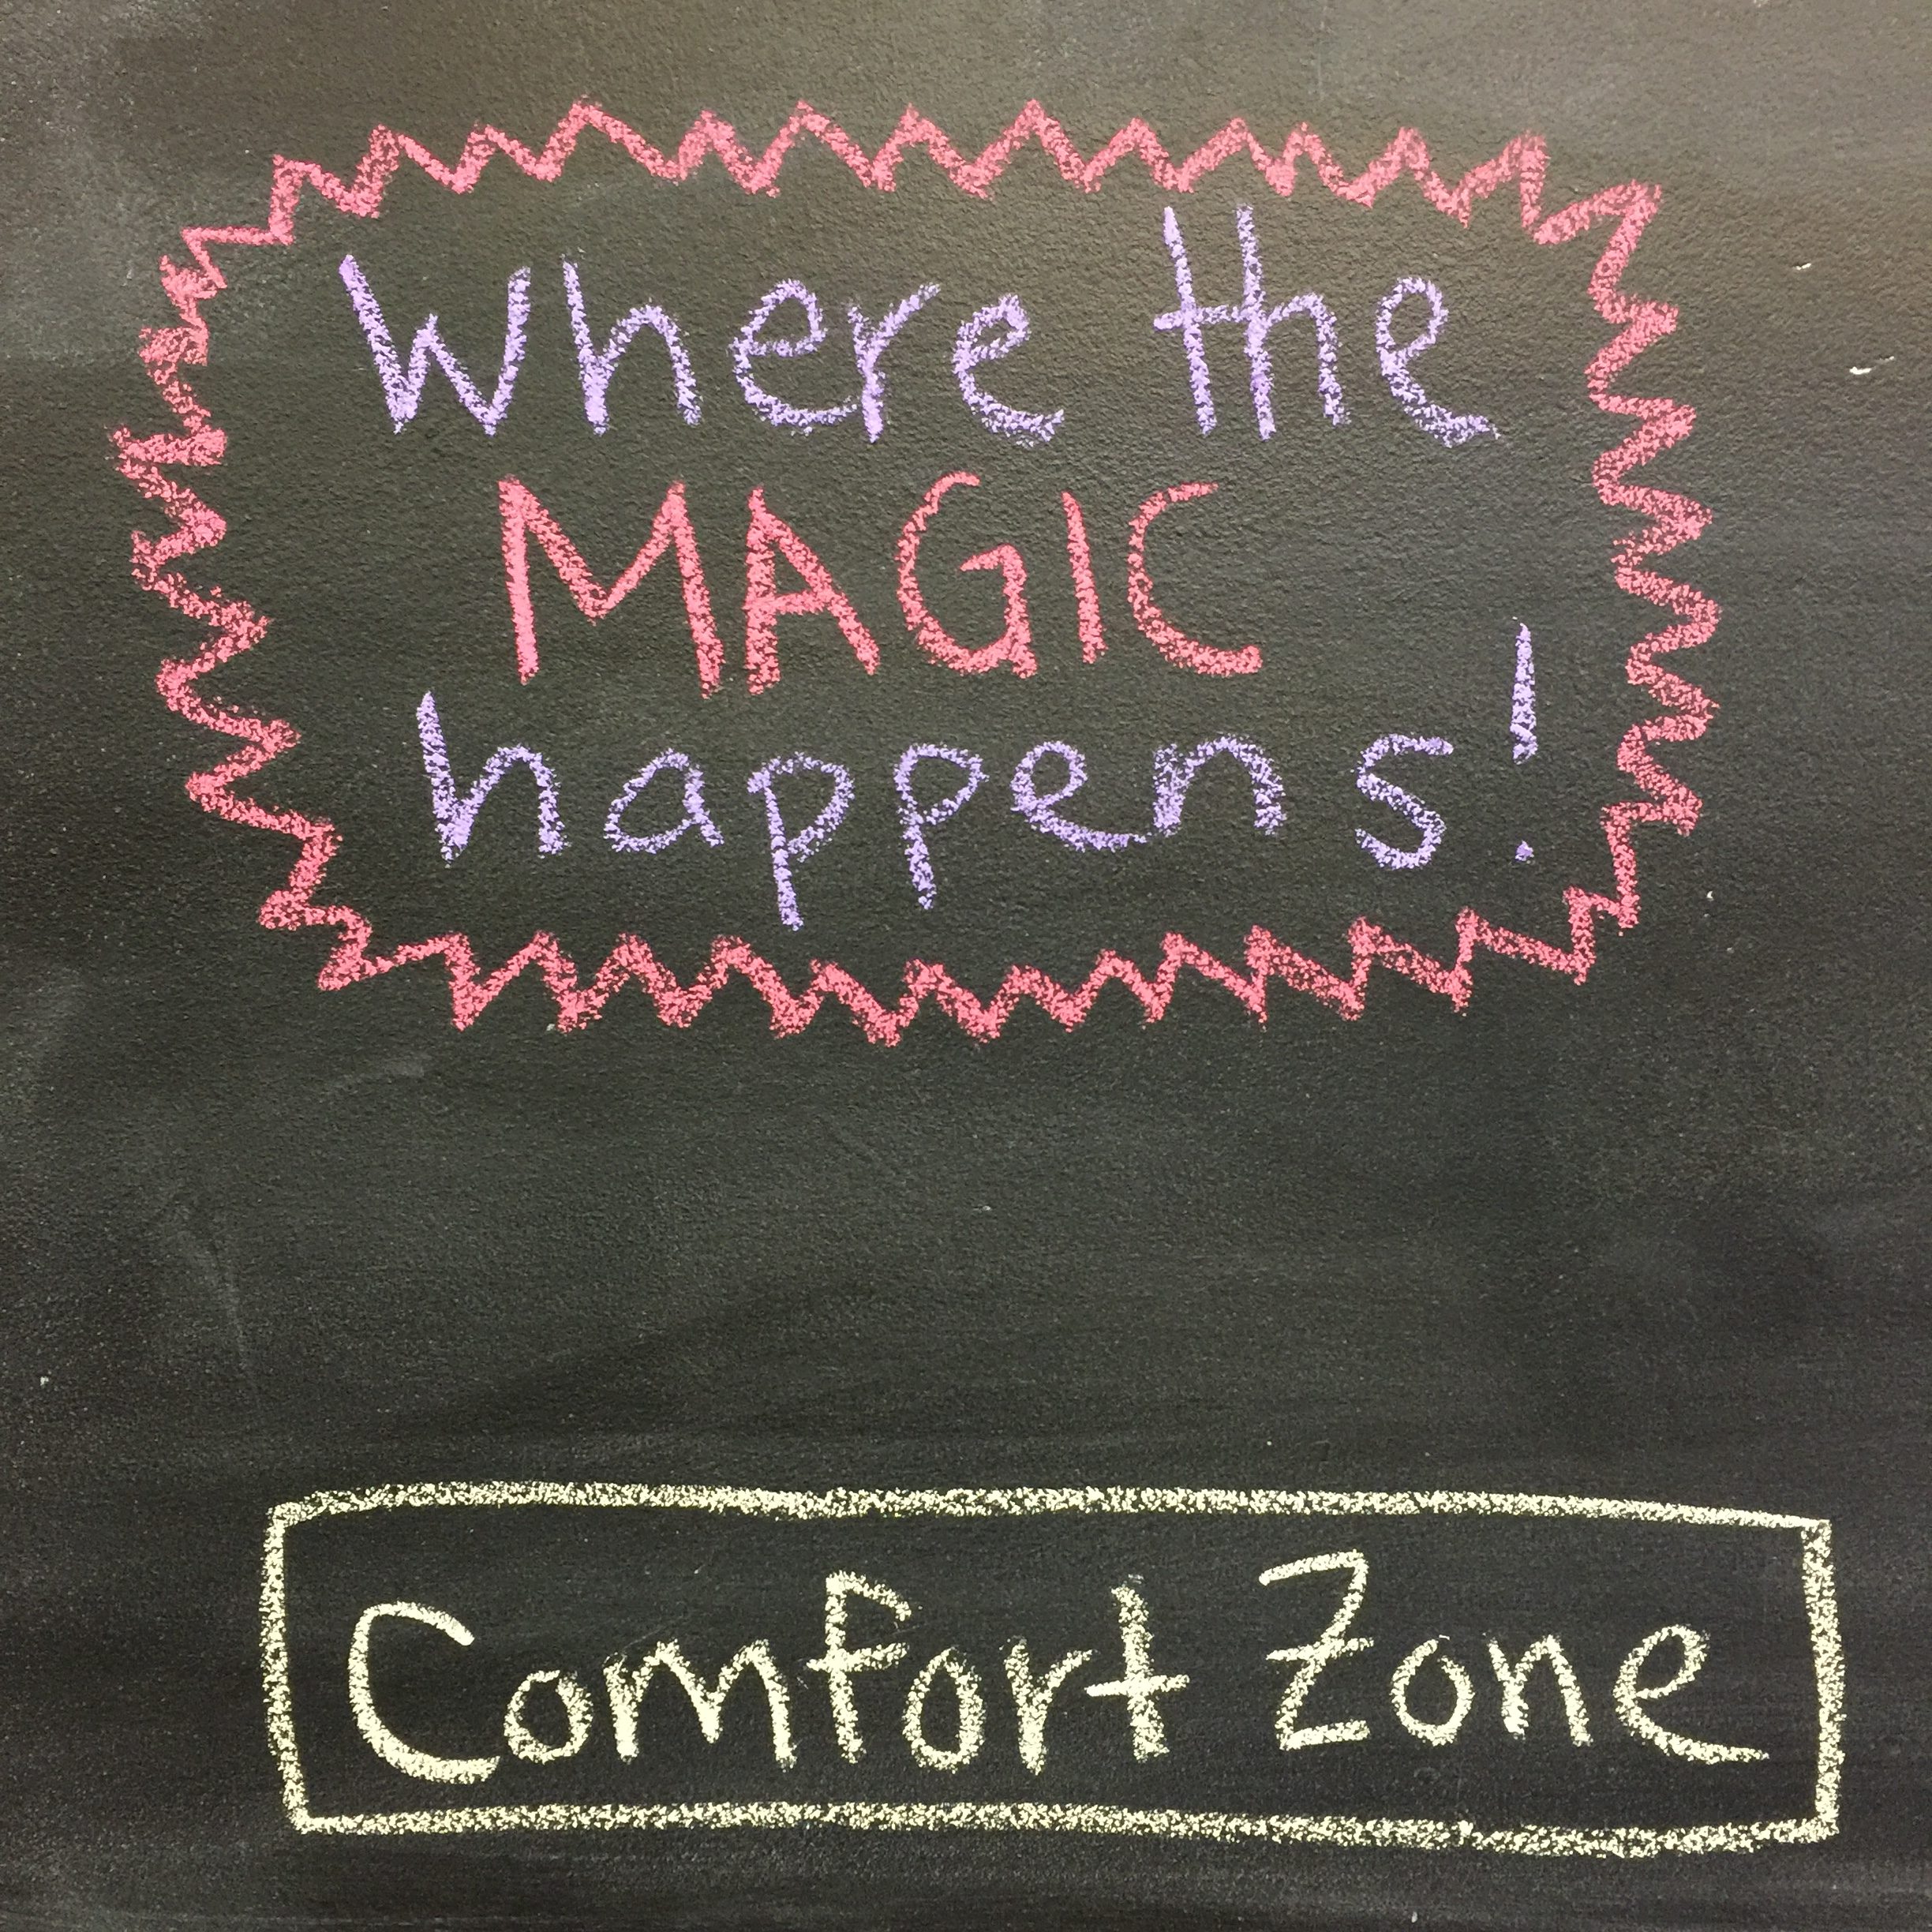 Where the
MAGIC
happens!
Comfort Zone